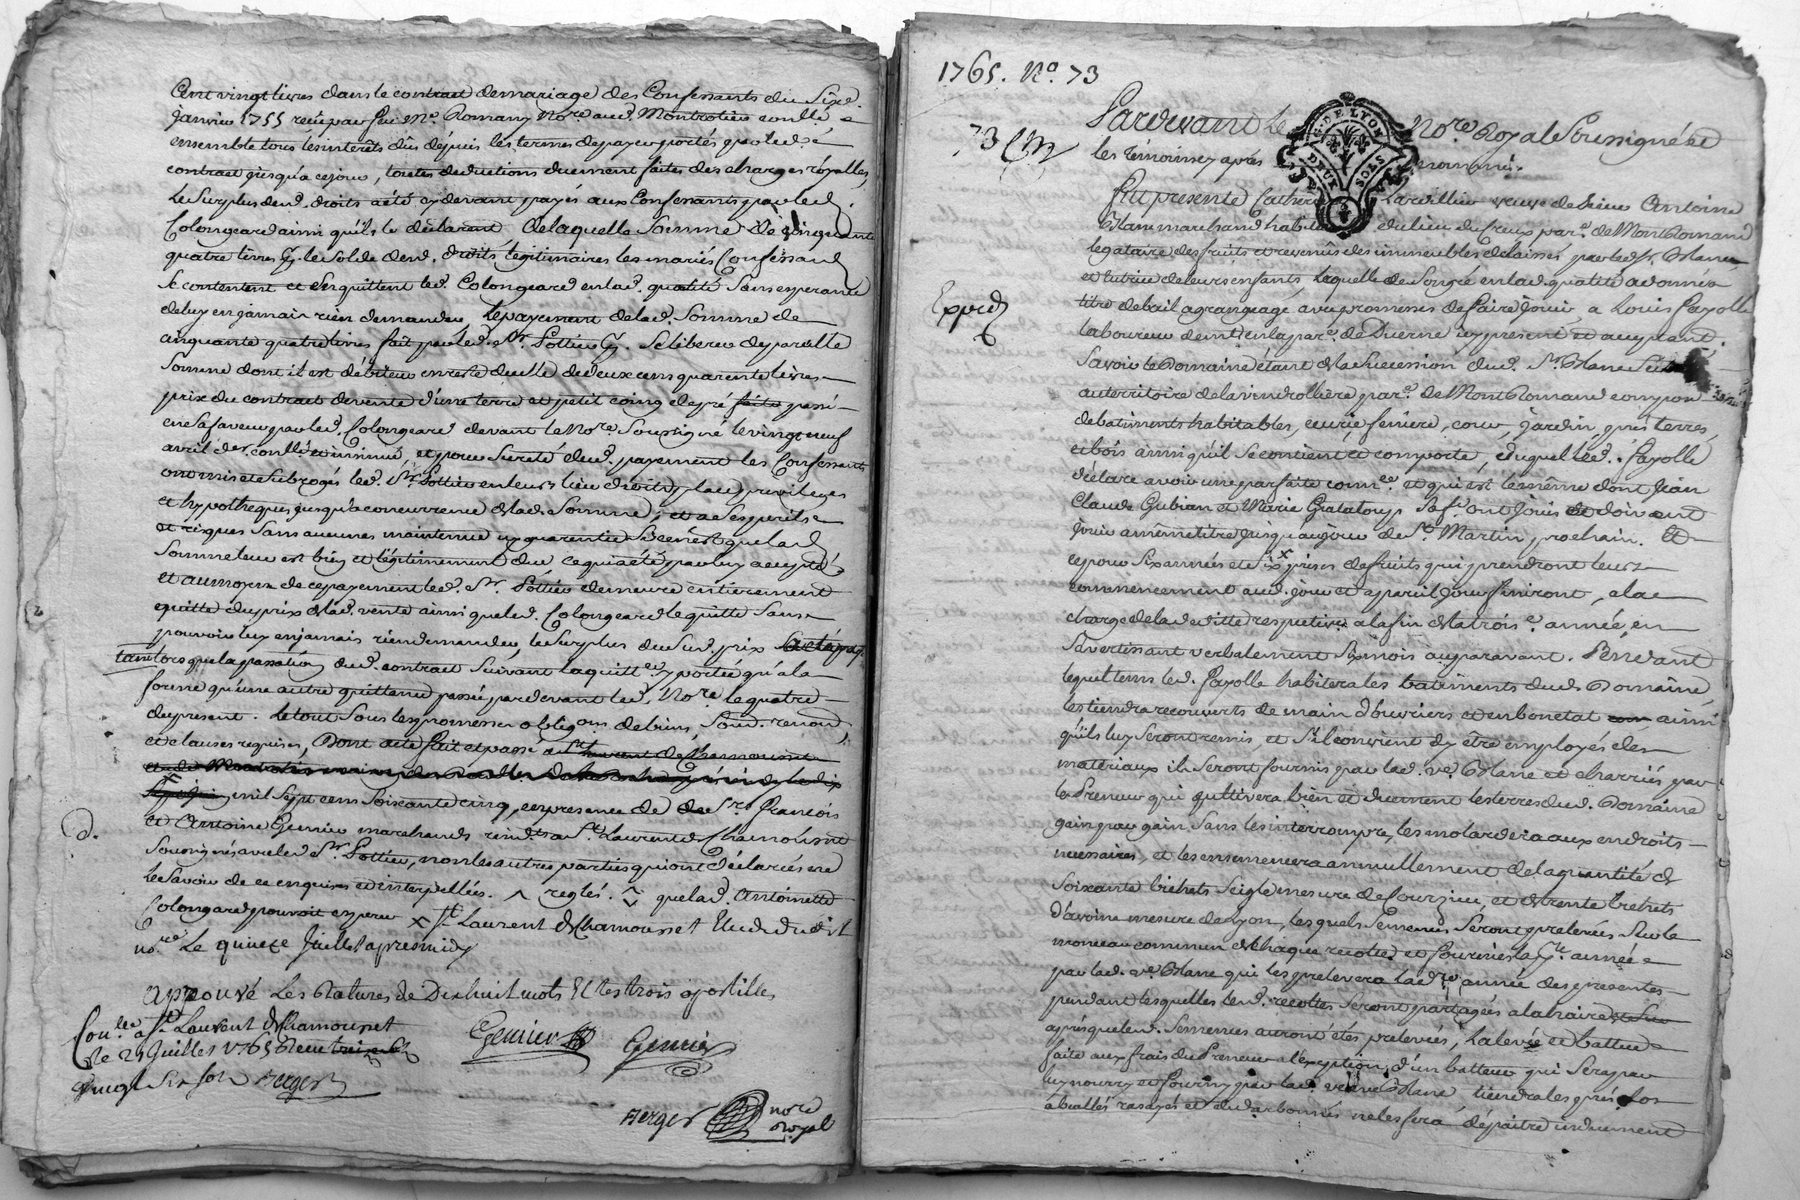 Cent vingt livres dans le contract de mariage des Confessants du Sixe.
janvier 1755 reçu par feu Me. Romany Nore. aud. Montrotier conllé
ensemble tous les interêts dûs depuis les termes de payer portés par led.
contrat jusqu'à ce jour, toutes deductions duement faites des charges royalles,
Le Surplus desd. droits a été cy devant payés aux Confessants par led.
Colongeard ainsi qu'ils le déclarent De laquelle Somme de cinquante
quatre livres le Solde desd. droits légitimaires les mariés Confessants
Se contentent et en quittent led. Colongeard en lad. qualité Sans esperance
de luy en jamais rien demander, Le payement de lad. Somme de
cinquante quatre livres fait par led. Sr. Pottier Se liberer de pareille
Somme dont il est débiteur en reste de celle de deux cens quarente livres
prix du contract de vente d'une terre et petit coing de pré passé
en sa faveur par led. Colongeard devant le Nore. Soussigné le vingt neuf
avril der. conllé et insinué, et pour Sureté dud. payement les Confessants
ont mis et Subrogés led. Sr. Pottier en leurs lieu droits place privileges
et hypotheques jusqu'a concurrence de lad. Somme, et a Ses perils
et risques Sans aucune maintenue ny garentie Si ce n'est que lad.
Somme leur est bien et légitimement due ce qui a été par luy accepté
et au moyen de ce payement led. Sr. Pottier demeure entierement
quitte du prix de lad. vente ainsi que led. Colongeard le quitte Sans
pouvoir luy en jamais rien demander, le Surplus du Susd. prix
tant lors que la passation dud. contract Suivant la quittce. y portée qu'à la
forme qu'une autre quittance passée par devant led. Nore. le quatre
du present. Le tout Sous les promesses obligons. de biens, Soûd. renond.
et clauses requises, Dont acte fait et passé
mil Sept cens Soixante cinq, en presence de Srs. François
et Antoine Genier marchands resid. a St. Laurent de Chamousset
Soussignés avec led. Sr. Pottier, non les autres parties qui ont déclarés ne
le Savoir de ce enquises et interpellées. reglés. que lad. Antoinette
Colongeard pouvoit esperer St. Laurent de Chamousset Etude dudit
nore. Le quinze Juillet apres midy
approuvé Les Ratures de Dixhuit mots Et les trois apostilles
Conlle. a St. Laurent de Chamousset
le 25 Juillet 1765
vingt Six sols Berger
Genier Genier
Berger nore
royal
1765. No. 73
73
Pardevant Le Nore. Royal Soussigné et
les témoins cy après nommés.
DE LYON
DEUX SOLS
Fut presente Catherine Larvillier veuve de Sieur Antoine
Blanc marchand habitante du lieu du Creux parse. de Montromand
legataire des fruits et revenus des immeubles delaissés par led. Sr. Blanc
et tutrice de leurs enfants, Laquelle de Son gré en lad. qualité a donné a
titre de bail a grangeage avec promesses de faire Jouir, a Louis Fayolle
Expred
laboureur demt. en la parse. de Duerne icy present et acceptant,
Savoir le Domaine étant de la Succession dud. Sr. Blanc
au territoire de la vindrollière parse. de Mont Romand composé
de batiments habitables, ecurie, feniere, cour, Jardin, prés terres,
et bois ainsi qu'il Se contient et comporte, duquel led. Fayolle
déclare avoir une parfaite connce. et qui est le même dont Jean
Claude Gubian et Marie Grataloup Sa fe. ont Jouis et doivent
Jouir a même titre Jusqu'au jour de St. Martin prochain. Et
ce pour Six années et Six prises de fruits qui prendront leur
commencement aud. Jour et a pareil Jour finiront, a la
charge de la dedite respective a la fin de la troise. année, en
S'avertissant verbalement Six mois auparavant. Pendant
lequel tems led. Fayolle habitera les batiments dud. Domaine
les tiendra recouverts de main d'ouvriers et en bon etat ainsi
qu'ils luy Seront remis, et S'il convient d'y être employés des
materiaux ils Seront fournis par lad. ve. Blanc et charriés par
le Preneur qui cultivera bien et duement les terres dud. Domaine
gain par gain, Sans les interrompre, les molardera aux endroits
necessaires, et les ensemencera annuellement de la quantité de
Soixante bichets Seigle mesure de Courzieu, et de trente bichets
d'avoine mesure de Lyon, lesquels Semences Seront prelevées Sur le
monceau commun de chaque recolte et fournies la 1re. année
par lad. ve. Blanc qui les prelevera la dre. année des presentes
pendant lesquelles lesd. recoltes Seront partagées a l'aire
après que lesd. Semences auront étés prelevées, la levée et battue
faite aux frais du Preneur a l'exception d'un batteur qui Sera par
luy nourry et fourny par lad. veuve Blanc tiendra les prés clos
abeallés rasés et ne les fera dépaitre indument